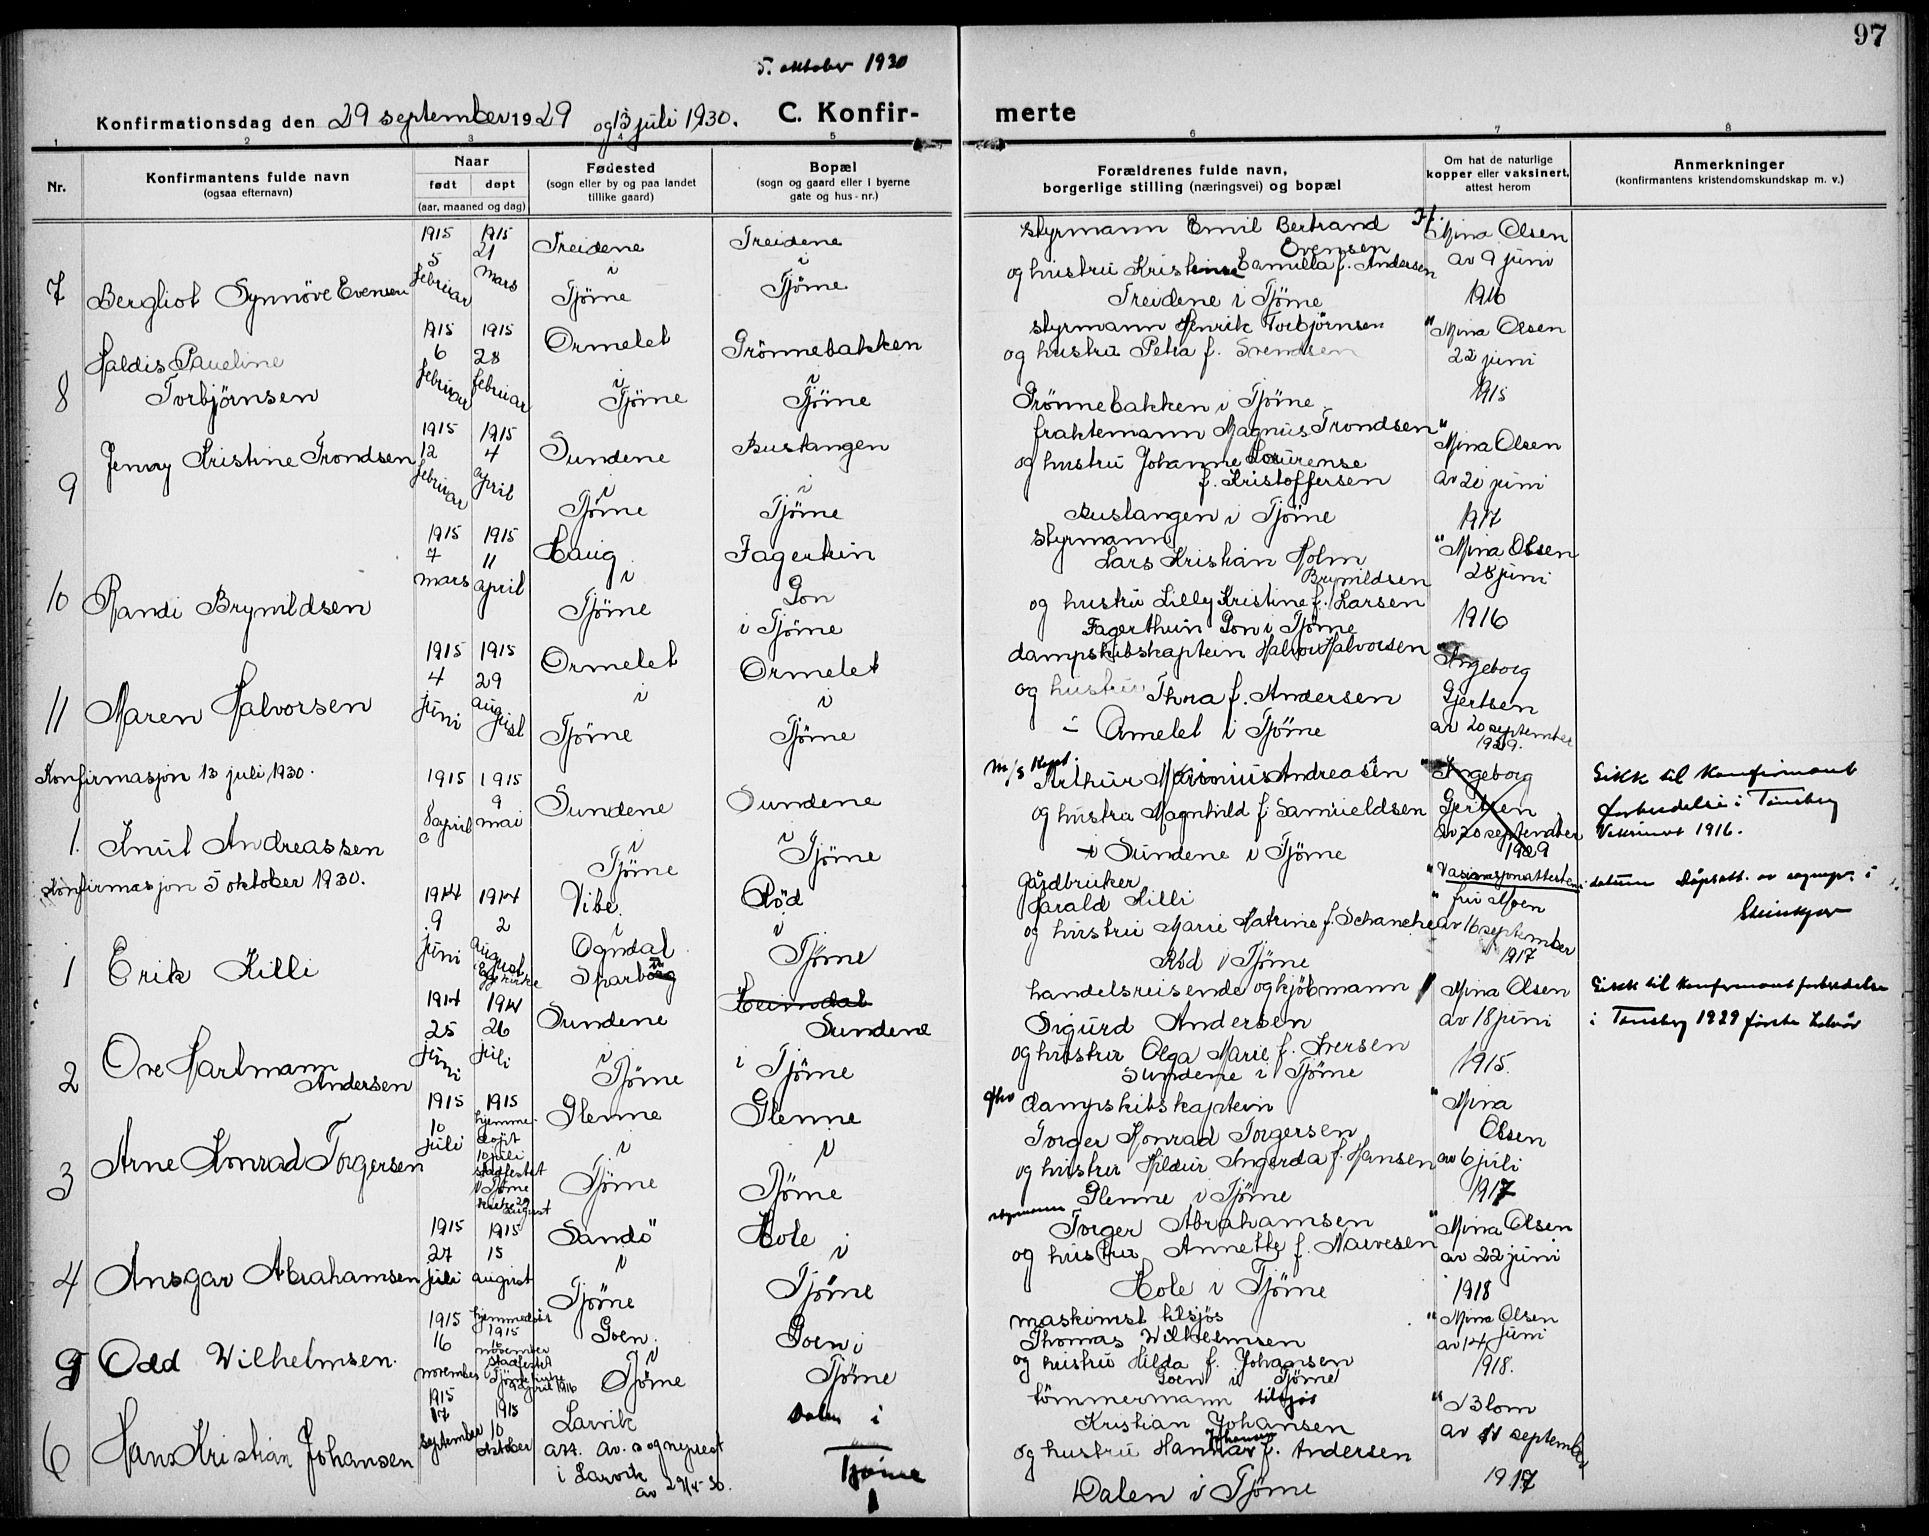 97
5. oktober 1930
Konfirmationsdag den 29 september 1929 og 13 juli 1930. C. Konfir-
merte
1 2 3 4 5 6 7 8
Nr.
Konfirmantens fulde navn
(ogsaa efternavn)
Naar
født døpt
(aar, maaned og dag)
Fødested
(sogn eller by og paa landet
tillike gaard)
Bopæl
(sogn og gaard eller i byerne
gate og hus-nr.)
Forældrenes fulde navn,
borgerlige stilling (næringsvei) og bopæl
Om hat de naturlige
kopper eller vaksinert,
attest herom
Anmerkninger
(konfirmantens kristendomskundskap m. v.)
7 Bergliot Synnöve Evensen
1915 5 februar
1915 21 mars
Treidene i Tjöme
Treidene i Tjöme
styrmann Emil Bertrand
Evensen
og hustru Kristense Camilla f. Andersen
Treidene i Tjöme
Mina Olsen
av 9 juni
1916
8 Haldis Pauline
Torbjörnsen
1915 6 februar
1915 28 februar
Ormelet i Tjöme
Grönnebakken i Tjöme
styrmann Henrik Torbjörnsen
og hustru Petra f. Svendsen
Grönnebakken i Tjöme
" Mina Olsen
22 juni
1915
9 Jenny Kristine Trondsen
1915 12 februar
1915 4 april
Sundene i Tjöme
Bustangen i Tjöme
fraktemann Magnus Trondsen
og hustru Johanne Laurense
f. Kristoffersen
Bustangen i Tjöme
" Mina Olsen
av 20 juni
1917
10 Randi Brynildsen
1915 7 mars
1915 11 april
Haug i Tjöme
Fagerheim
Gon
i Tjöme
styrmann
Lars Kristian Holm
Brynildsen
og hustru Lilly Kristine f. Larsen
Fagertheim Gon i Tjöme
" Mina Olsen
28 juni
1916
11 Maren Halvorsen
1915 4 juni
1915 29 august
Ormelet i Tjöme
Ormelet i Tjöme
dampskibskaptein Halvor Halvorsen
og hustru Thora f. Andersen
i Ormelet i Tjöme
" Ingeborg
Gjertsen
av 20 september
1929.
Konfirmasjon 13 juli 1930.
1. Knut Andreassen
1915 8 april
1915 9 mai
Sundene i Tjöme
Sundene i Tjöme
m/s Kapt.
Arthur Marinius Andreasen
og hustru Magnhild f. Samuelsen
i Sundene i Tjöme
" Ingeborg
Gjertsen
av 20 september
1929
Gikk til konfirmant
forberedelse i Tönsberg
Vaksinert 1916.
Konfirmasjon 5 oktober 1930.
1 Erik Killi
1914 9 juni
1914 2 august
Egge kirke
Vibe i Ogndal
Sparbu
Röd i Tjöme
Gårdbruker
Harald Killi
og hustru Marie Katrine f. Schanche
Röd i Tjöme
" Vaksinasjonsattesten
" fru Moen
av 16 september
1917
datum Dåpsatt. av sognepr. i
Steinkjer
2 Ove Hartmann
Andersen
1914 25 juni
1914 26 juli
Sundene i Tjöme
Heimdal
Sundene
i Tjöme
handelsreisende og kjöbmann
Sigurd Andersen
og hustru Olga Marie f. Iversen
Sundene i Tjöme
Mina Olsen
av 18 juni
1915.
Gikk til konfirmantforberedelse
i Tönsberg 1929 første halvår
3 Arne Konrad Torgersen
1915 10 juli
1915 hjemme-
döpt
10 juli
stadfestet
i Tjöme
kirke 29
august
Glenne i Tjöme
Glenne i Tjöme
dampskibskaptein
Torger Konrad Torgersen
og hustru Hildur Ingerda f. Hansen
Glenne i Tjöme
" Mina
Olsen
av 6 juli
1917
4 Ansgar Abrahamsen
1915 27 juli
1915 15 august
Sandö i Tjöme
Hole i Tjöme
styrmann
Torger Abrahamsen
og hustru Annette f. Marvesen
Hole i Tjöme
" Mina Olsen
av 22 juni
1918
5 Odd Wilhelmsen.
1915 16 november
hjemmedöpt
1915
16
november
stadfestet
i Tjöme kirke
april 1916
Goen. i Tjöme
Goen i Tjöme
maskinist tilsjös
Thomas Wilhelmsen
og hustru Hilda f. Johansen
Goen i Tjöme
" Mina Olsen
av 14 juni
1918.
6 Hans Kristian Johansen
1915 17 september
1915 10 oktober
Larvik
att. av sogneprest
i Larvik
av 29/4-30.
Dalen i
Tjöme
tömmermann tilsjös
Kristian Johansen
og hustru Hanna Johansen f. Andersen
Dalen i Tjöme
" Blom
av 11 september
1917